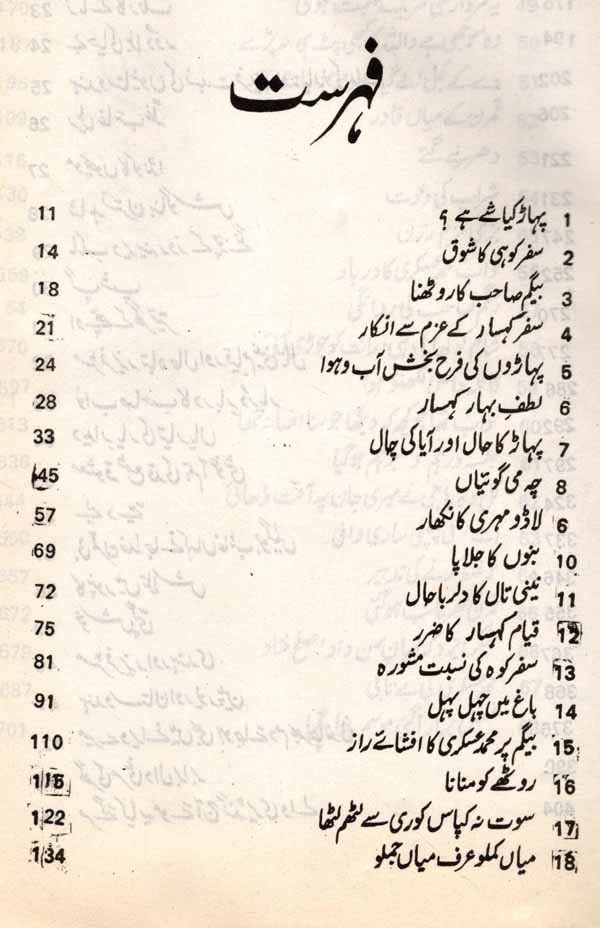 فہرست
1 پہاڑ کیا شے ہے ؟ 11
2 سفر کوہی کا شوق 14
3 بیگم صاحب کا روٹھنا 18
4 سفر کہسار کے عزم سے انکار 21
5 پہاڑوں کی فرح بخش آب و ہوا 24
6 لطف بہار کہسار 28
7 پہاڑ کا حال اور آیا کی چال 33
8 چہ می گوئیاں 45
6 لاڈو مہری کا نکھار 57
10 بنوں کا جلاپا 69
11 نینی تال کا دلربا حال 72
12 قیام کہسار کا ضرر 75
13 سفر کوہ کی نسبت مشورہ 81
14 باغ میں چہل پہل 91
15 بیگم پر محمد عسکری کا افشائے راز 110
16 روٹھے کو منانا 115
17 سوت نہ کپاس کوری سے لٹھم لٹھا 122
18 میاں کملو عرف میاں جملو 134